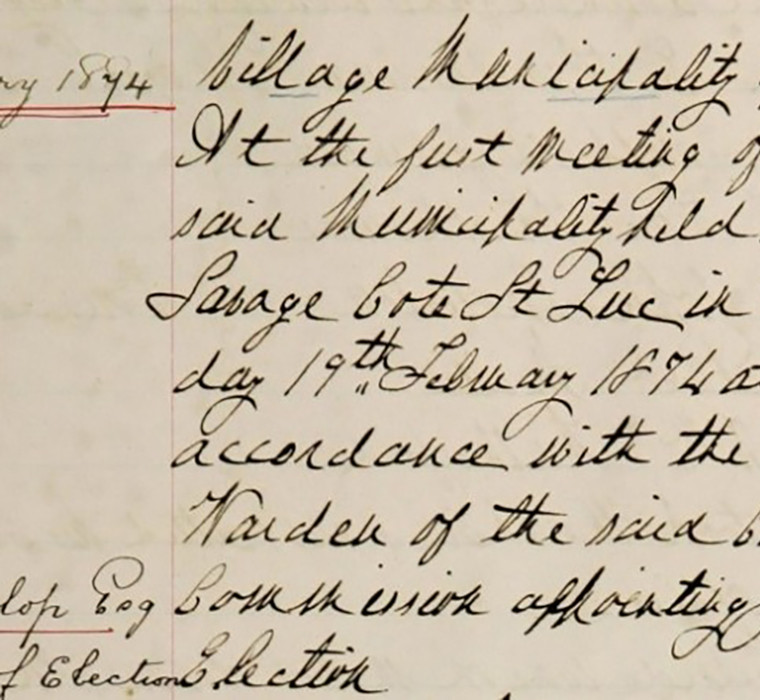 ry 1874
Village Municipality
At the first Meeting of
said Municipality held
Savage Cote St Luc in
day 19th February 1874 a
accordance with the
Warden of the said C
lop Esq
Commission appointing
f Election
Election